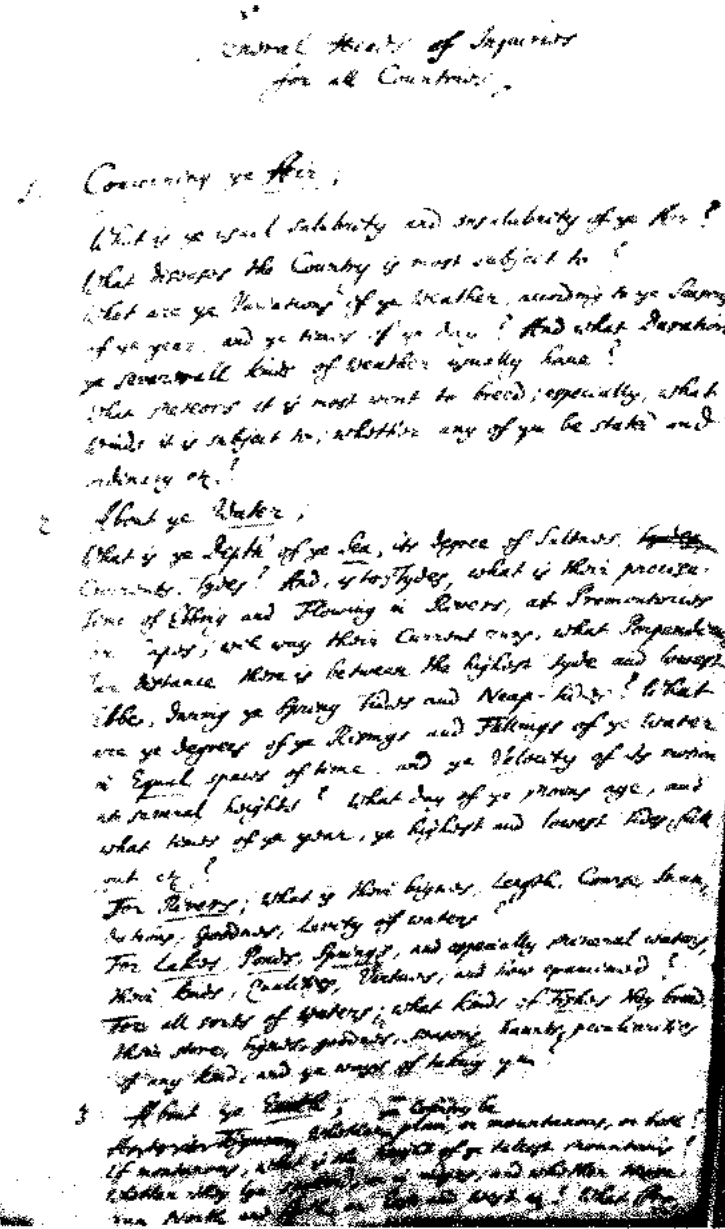 Heads of Inquiries
for all Countries,
1. Concerning ye Air;
What is ye usual salubrity and insalubrity of ye Air?
What diseases the Country is most subject to?
What are ye Variations of ye Weather, according to ye Seasons
of ye year, and ye times of ye day? And what Duration
ye severall kinds of Weather usually haue?
What meteors it is most wont to breed; especially, what
winds it is subject to; whether any of ym be stated and
ordinary etc.?
2 About ye Water;
What is ye Depth of ye Sea, its degree of Saltnes,
Currents, Tydes? And, as to Tydes, what is their precise
time of Ebbing and Flowing in Rivers, at Promontories
or Capes; wch way their Current runs, what Perpendicu
lar distance there is between the highest tyde and lowest
Ebbe, during ye Spring tides and Neap-tides? What
are ye degrees of ye Risings and Fallings of ye Water
in Equal spaces of time, and ye Velocity of its motion
at several heights? What day of ye moons age, and
what times of ye year, ye highest and lowest tides fall
out etc.?
For Rivers; What is their bignes, Length, Course, Inun,
dations, goodnes, Levity of waters?
For Lakes, Ponds, Springs, and especially mineral waters,
their kinds, Qualities, Virtues, and how examined?
For all sorts of Waters; what kinds of Fishes they breed,
their store, bignes, goodnes, seasons, haunts, peculiarities
of any kind, and ye ways of taking ym
3 About ye Earth; ye Country be
whether plain, or mountanous, or both?
If mountanous, what is the height of ye tallest mountains?
whether they lye and whether
run North and West etc? What